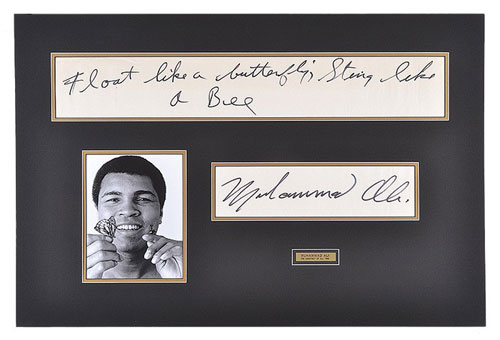 Float like a butterfly, Sting like
a Bee
Muhammad Ali.
MUHAMMAD ALI